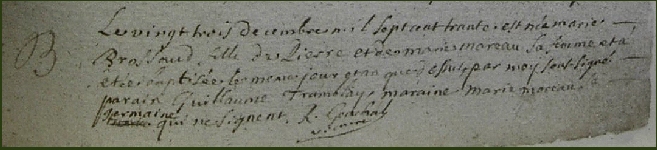 B
Le vingt trois decembre mil sept cent trante est née marie
Brossaud fille de Pierre et de marie moreau sa femme et a
étée baptisée le meme jour que dessus par moy sous signé
parain Guillaume Tramblay maraine marie moreau
germaine qui ne signent. R.
vicaire